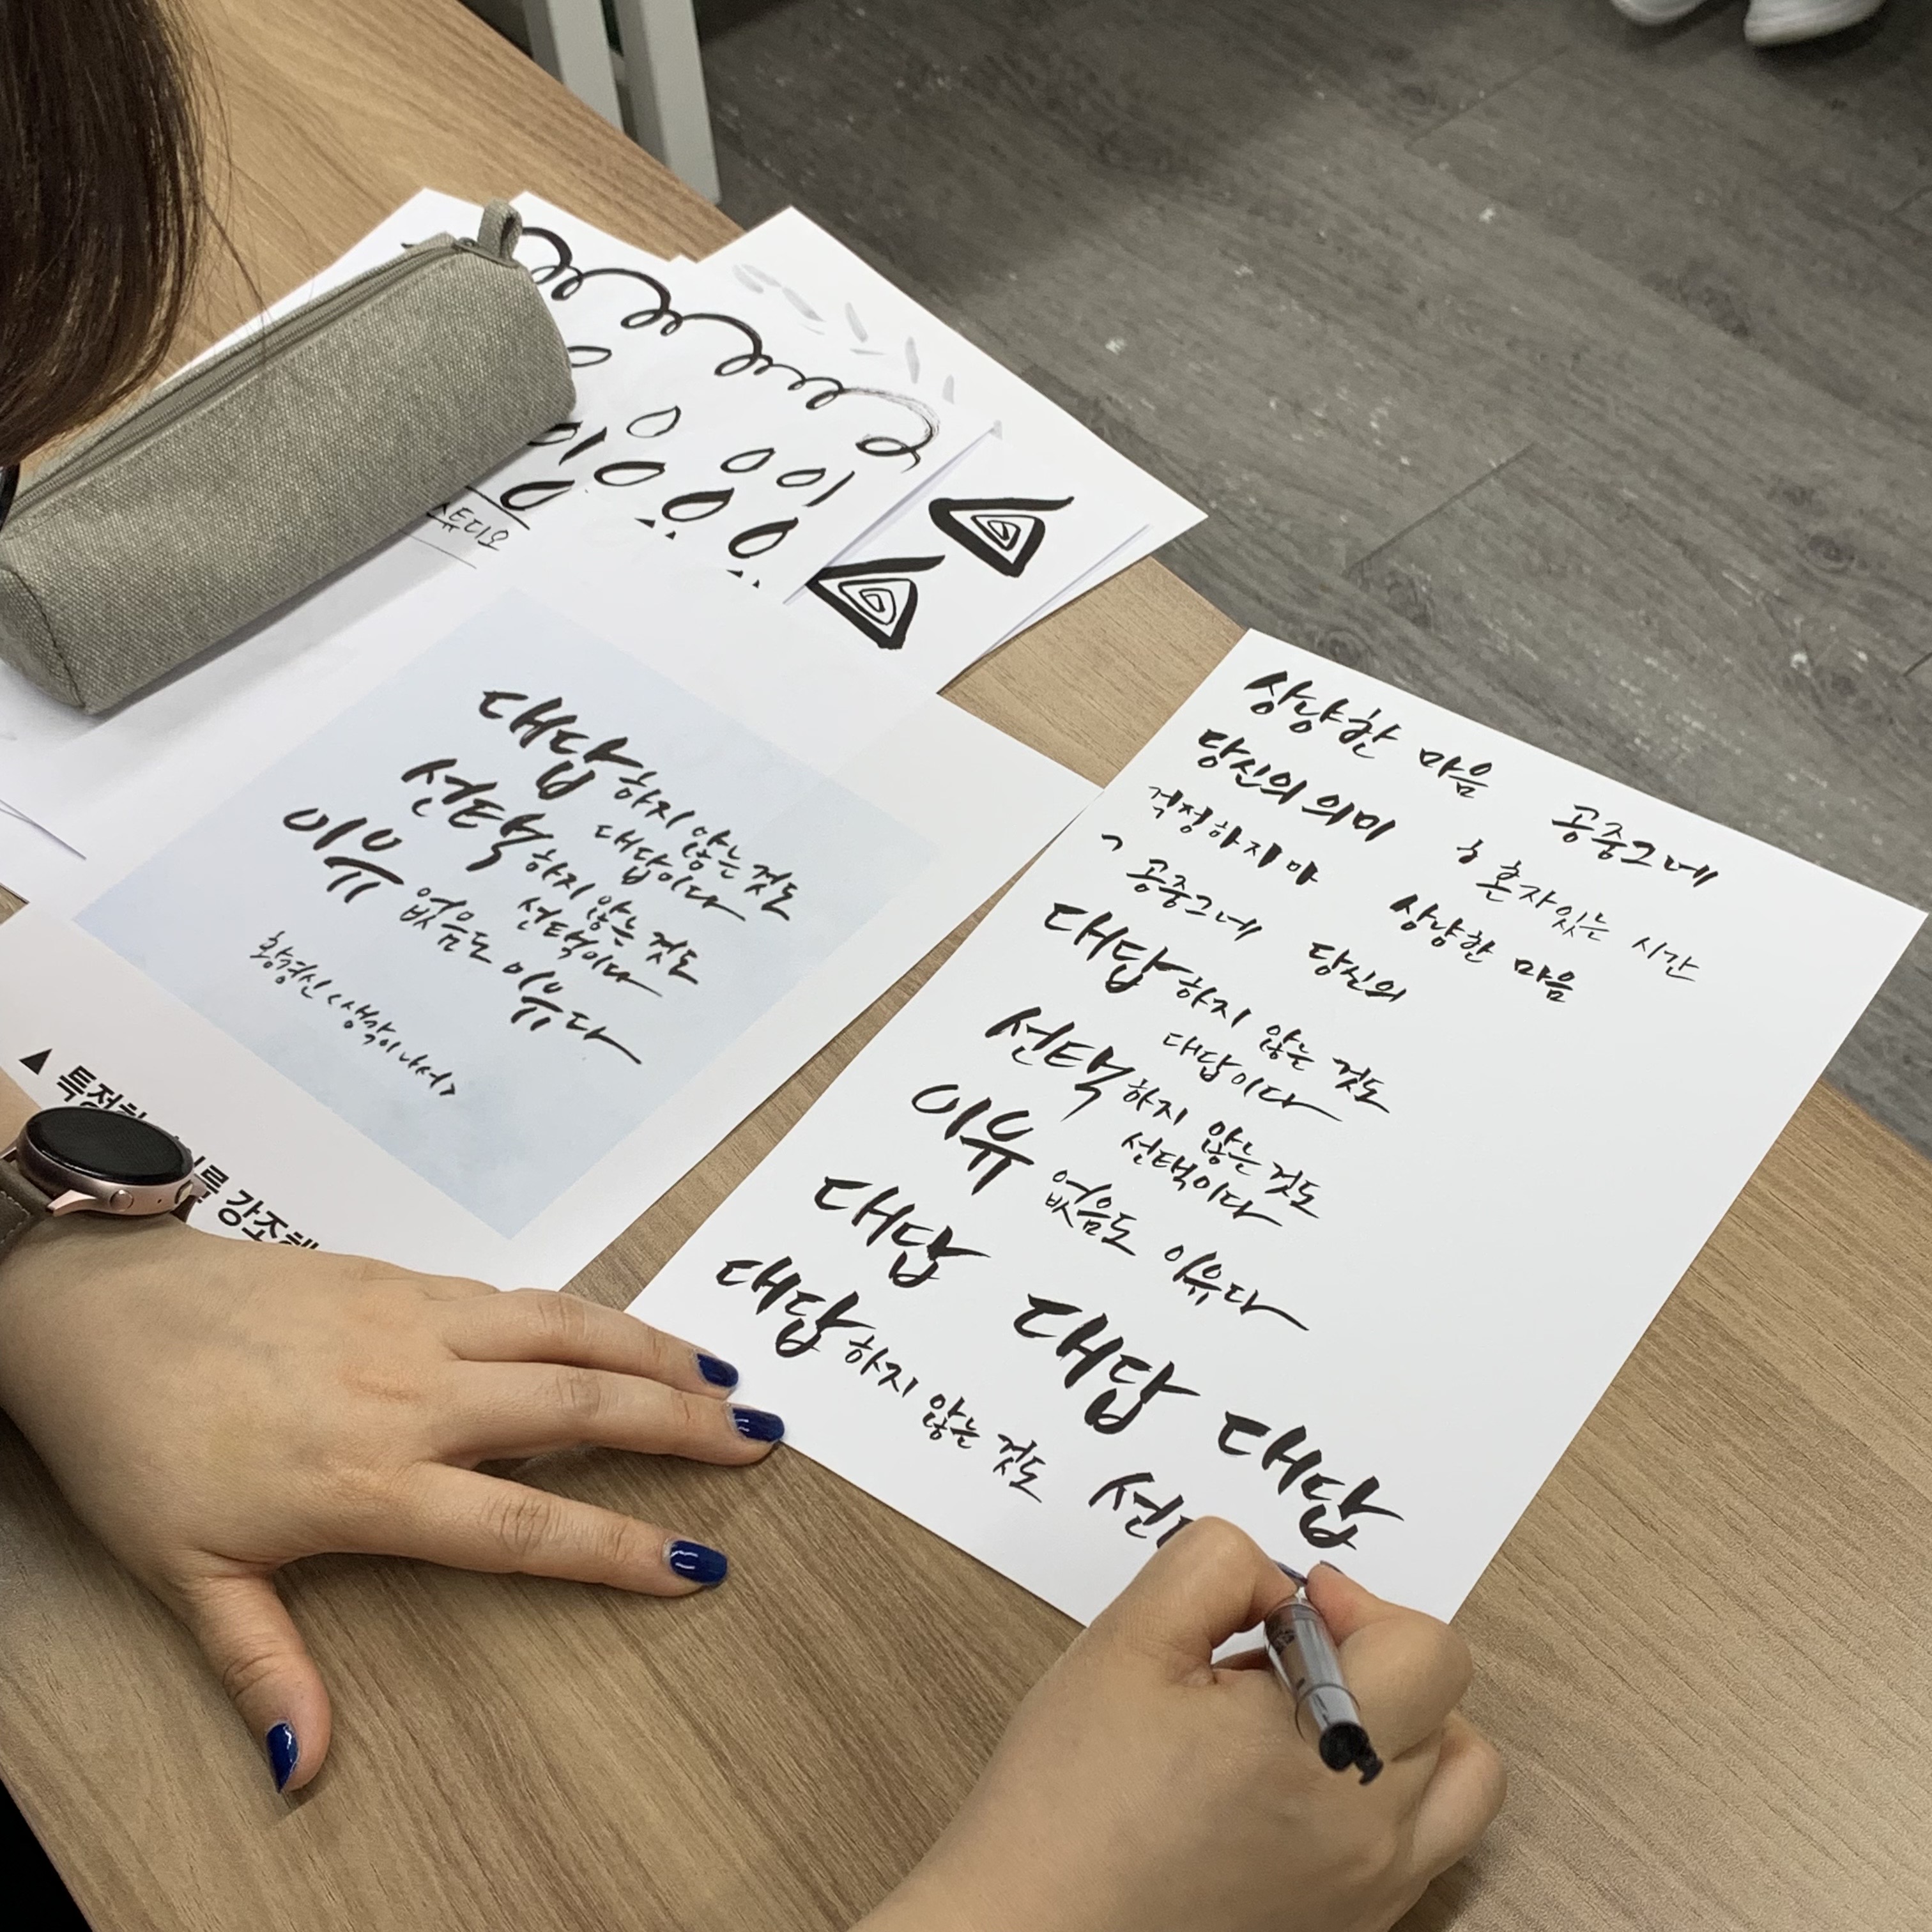 스튜디오
대답하지 않는 것도
대답이다
선택하지 않는 것도
선택이다
이유 없음도 이유다
황경신 <생각이 나서>
▲ 특정한
를 강조해
상냥한 마음 공중그네
당신의 의미 혼자있는 시간
걱정하지 마 상냥한 마음
공중그네 당신의
대답하지 않는 것도
대답이다
선택하지 않는 것도
선택이다
이유 없음도 이유다
대답 대답 대답
대답하지 않는 것도 선